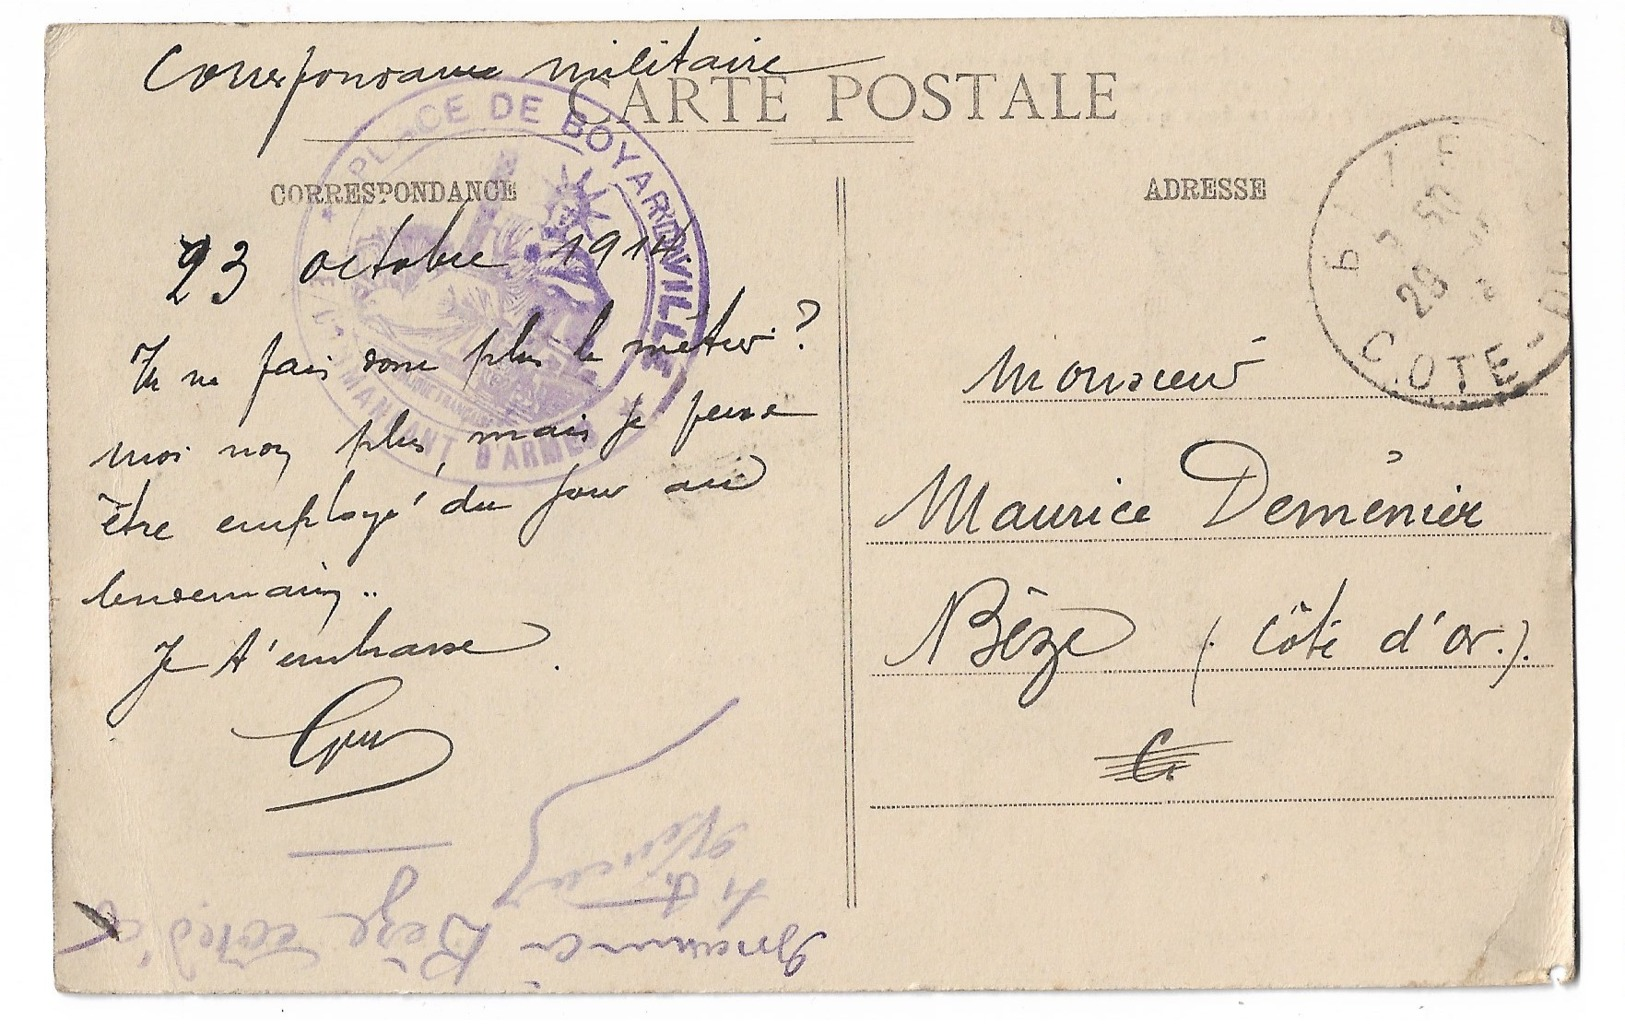 Correspondance militaire
CARTE POSTALE
PLACE DE BOYARDVILLE
COMMANDANT D'ARMES
CORRESPONDANCE
23 octobre 1914.
Tu ne fais donc plus le métier?
moi non plus, mais je pense
être employé du jour au
lendemain..
Je t'embrasse
ADRESSE
BÈZE
29
COTE-D'OR
Monsieur
Maurice Deménier
Bèze (Côte d'or.).
Bèze cote d'or